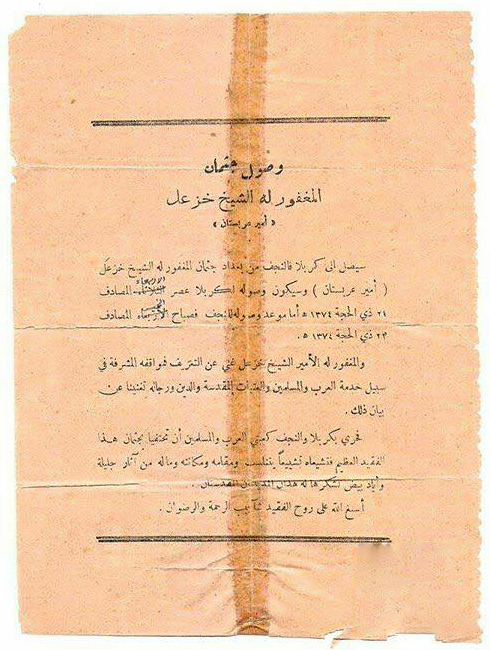 وصول جثمان
المغفور له الشيخ خزعل
« أمير عربستان »
سيصل الى كربلا فالنجف من بغداد جثمان المغفور له الشيخ خزعل
( أمير عربستان ) وسيكون وصوله لكربلا عصر الاربعاء الثلاثاء المصادف
٢١ ذي الحجة ١٣٧٤ ه أما موعد وصوله للنجف فصباح الخميس الاربعاء المصادف
٢٣ ذي الحجة ١٣٧٤ ه .
والمغفور له الأمير الشيخ خزعل غني عن التعريف فمواقفه المشرفة في
سبيل خدمة العرب والمسلمين والعتبات المقدسة والدين ورجاله تغنينا عن
بيان ذلك .
فحري بكربلا والنجف كمدينتي العرب والمسلمين أن تحتفيا بجثمان هذا
الفقيد العظيم فتشيعاه تشييعاً يتناسب ومقامه ومكانته وماله من آثار جليلة
وأياد بيض تشكرها له هذان المدينتان المقدستان .
أسبغ الله على روح الفقيد شآبيب الرحمة والرضوان .